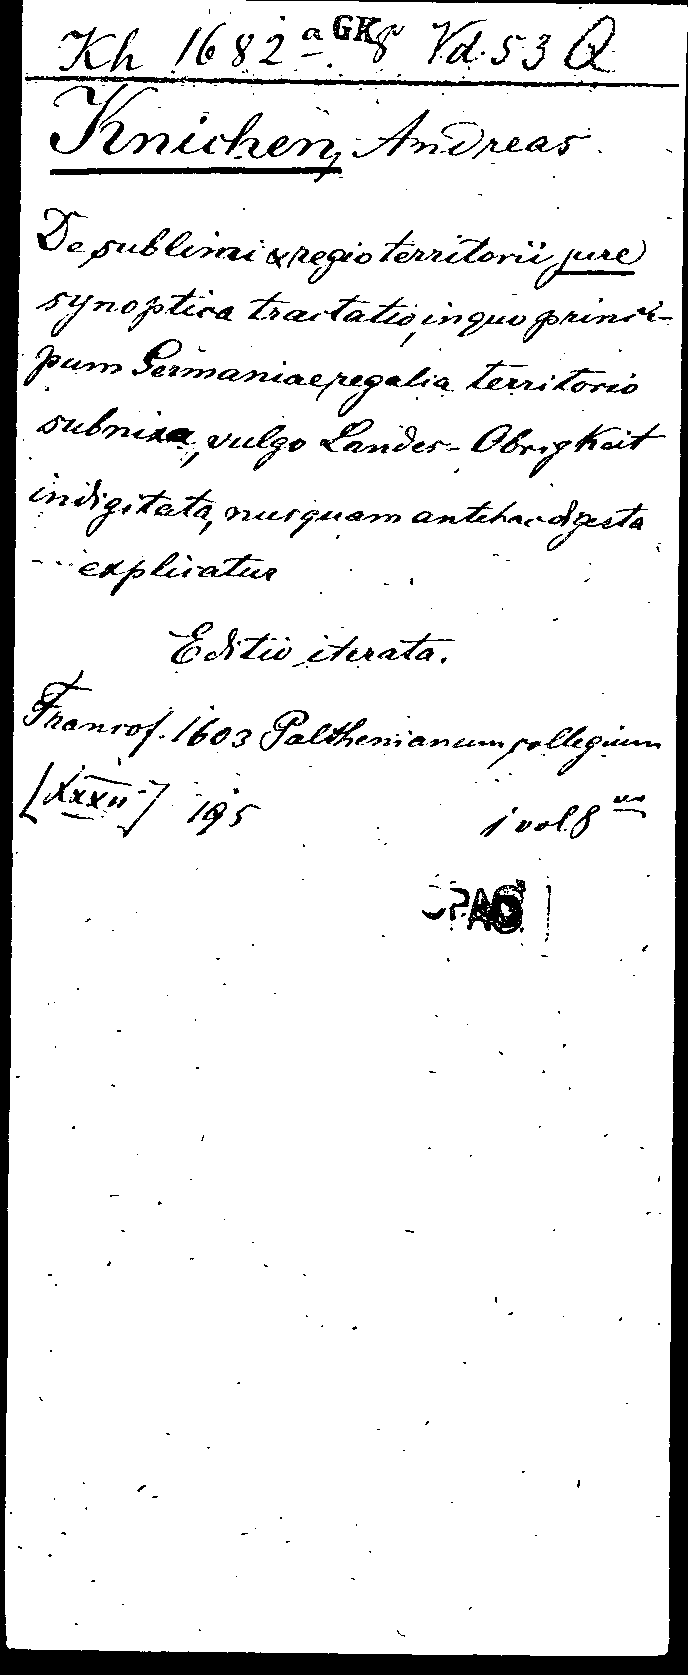 Kh 1682 a GK8 Vd. 53 Q
Knichen, Andreas.
De sublimi & regio territorii jure
synoptica tractatio, in quo princi-
pum Germaniae, regalia territorio
subnixa, vulgo Landes-Obrigkeit
indigitata, nusquam antehac digesta
explicatur
Editio iterata.
Francof. 1603 Palthenianum collegium
[XXXII] 195 1 vol 8 vo
OPAC